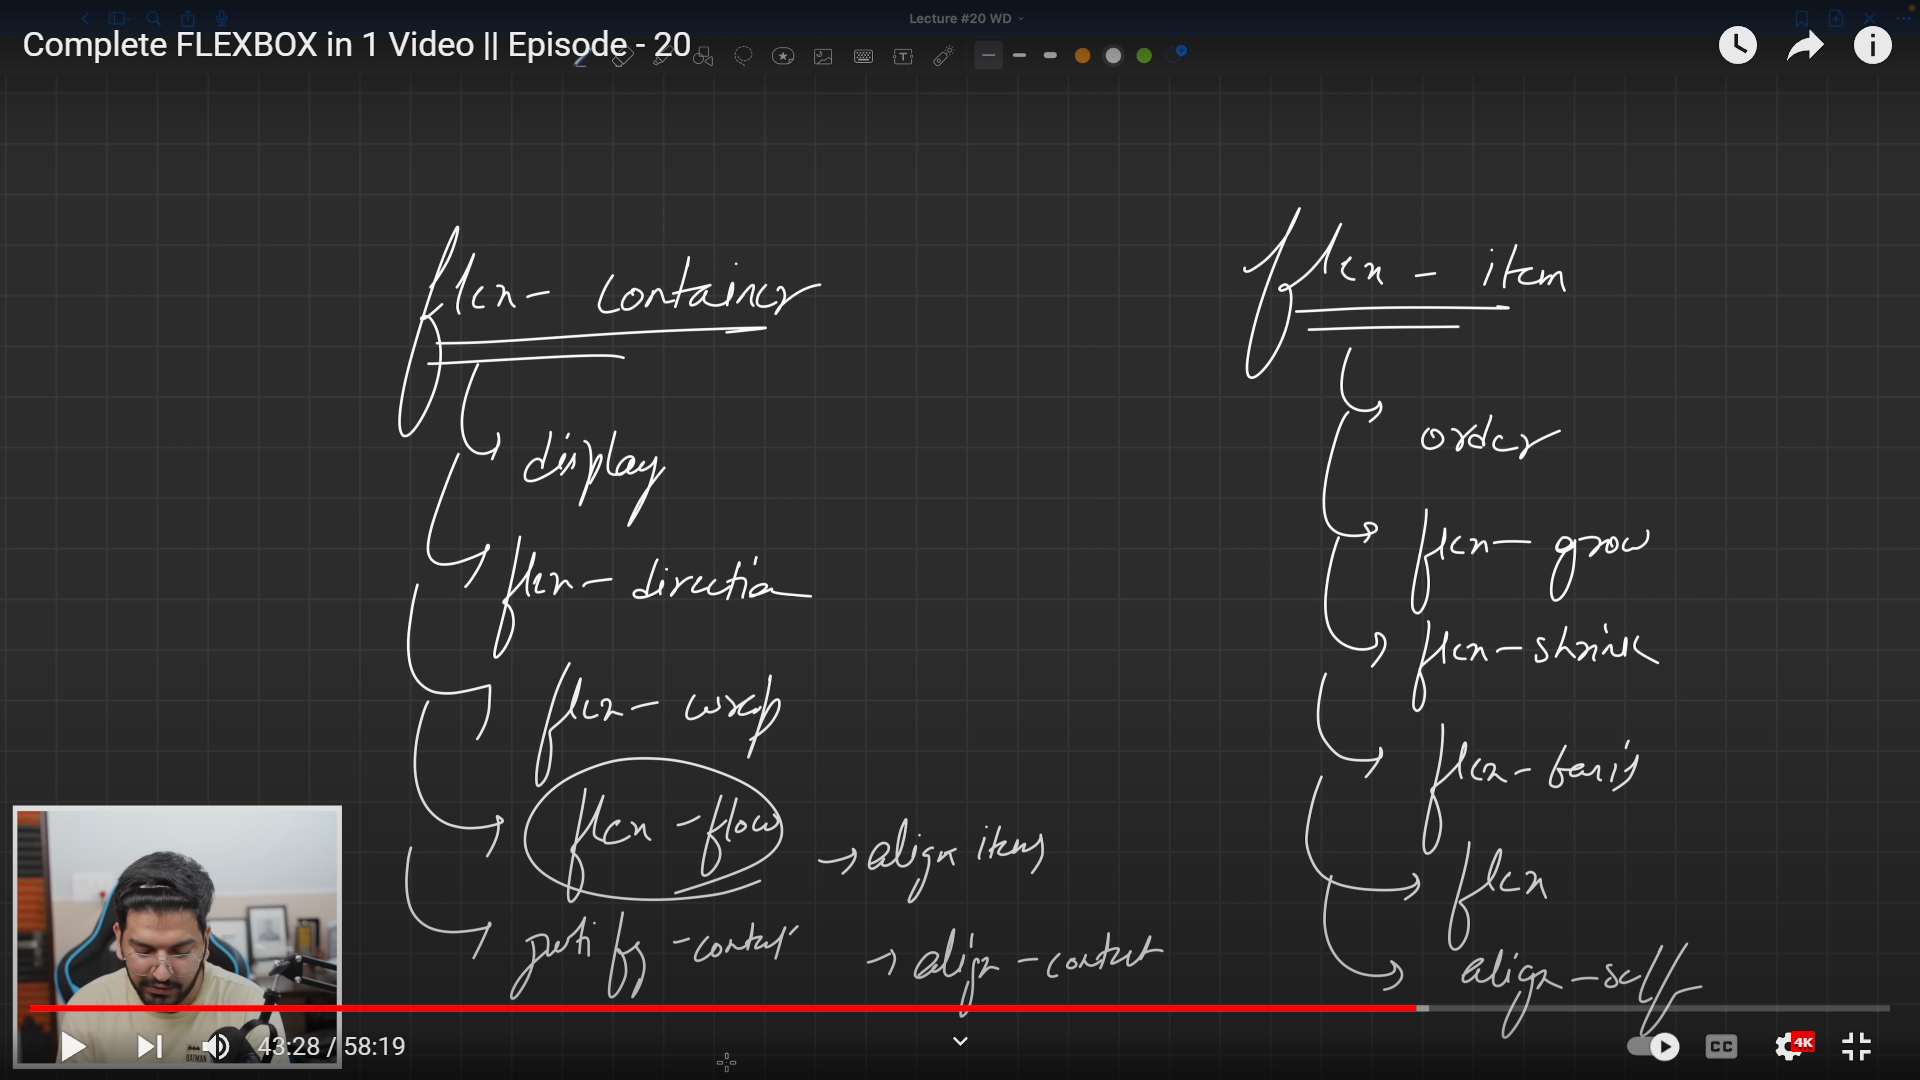 Lecture #20 WD
Complete FLEXBOX in 1 Video || Episode - 20
flex - container
display
flex - direction
flex - wrap
flex - flow
→ align items
justify - content
→ align - content
flex - item
order
flex - grow
flex - shrink
flex - basis
flex
align - self
BATMAN
43:28 / 58:19
CC
4K